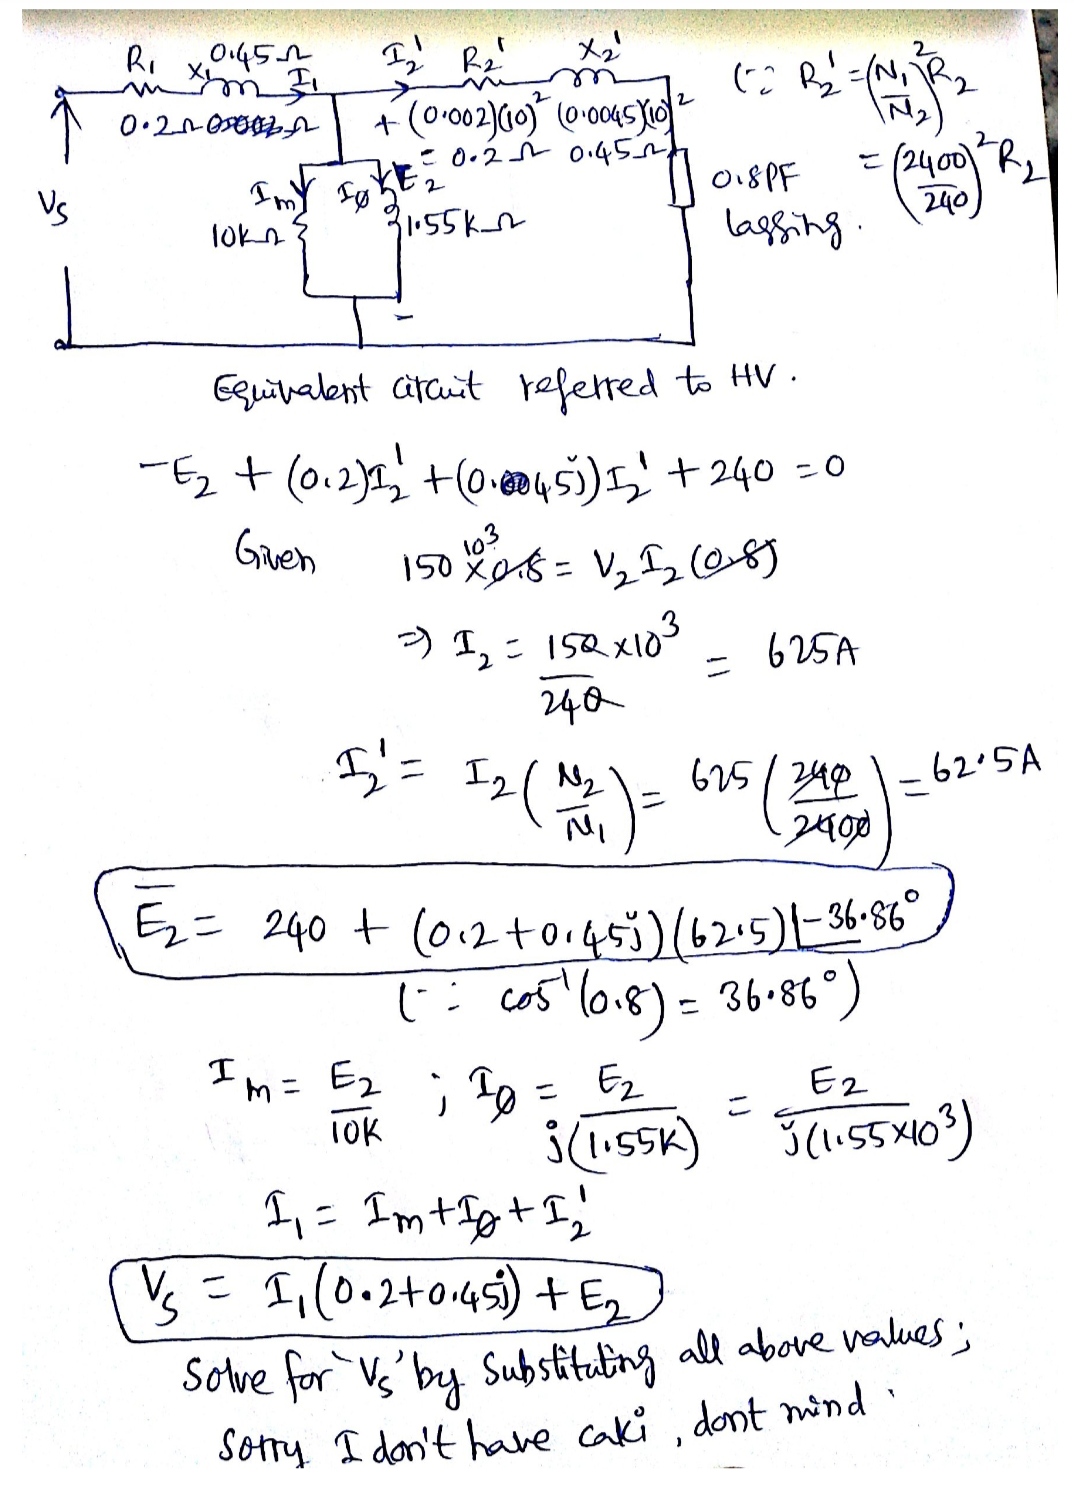 R₁ X₁ 0.45Ω I₁ I₂' R₂' X₂' (∵ R₂' = (N₁/N₂)² R₂
0.2Ω + (0.002)(10)² (0.0045)(10)²
= 0.2Ω 0.45Ω = (2400/240)² R₂
Vs Im Iø E₂ 0.8PF
10kΩ 1.55kΩ lagging.
-
Equivalent circuit referred to HV.
-E₂ + (0.2)I₂' + (0.45j)I₂' + 240 = 0
Given 150 × 10³ × 0.8 = V₂ I₂ (0.8)
⇒ I₂ = 150 × 10³ / 240 = 625A
I₂' = I₂ (N₂/N₁) = 625 (240/2400) = 62.5A
E̅₂ = 240 + (0.2 + 0.45j)(62.5)∠-36.86°
(∵ cos⁻¹(0.8) = 36.86°)
Im = E₂/10K ; Iø = E₂/j(1.55K) = E₂/j(1.55×10³)
I₁ = Im + Iø + I₂'
Vs = I₁(0.2 + 0.45j) + E₂
Solve for 'Vs' by Substituting all above values;
Sorry I don't have calci, dont mind.